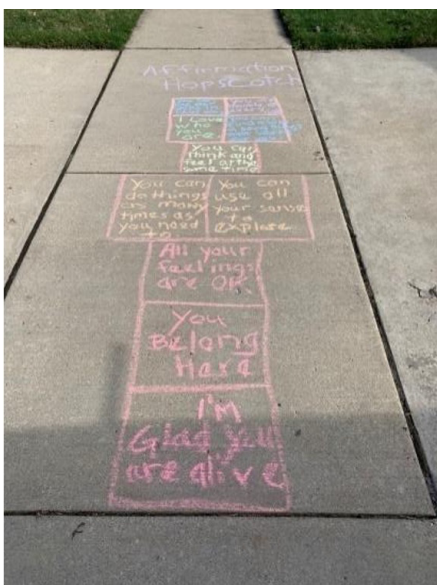 Affirmation
Hopscotch
I Love
who
you
are
You can
think and
feel at the
same time
You can
do things
as many
times as
you need
to
You can
use all
your sense
to
explore
All your
feelings
are OK
You
Belong
Here
I'M
Glad you
are alive